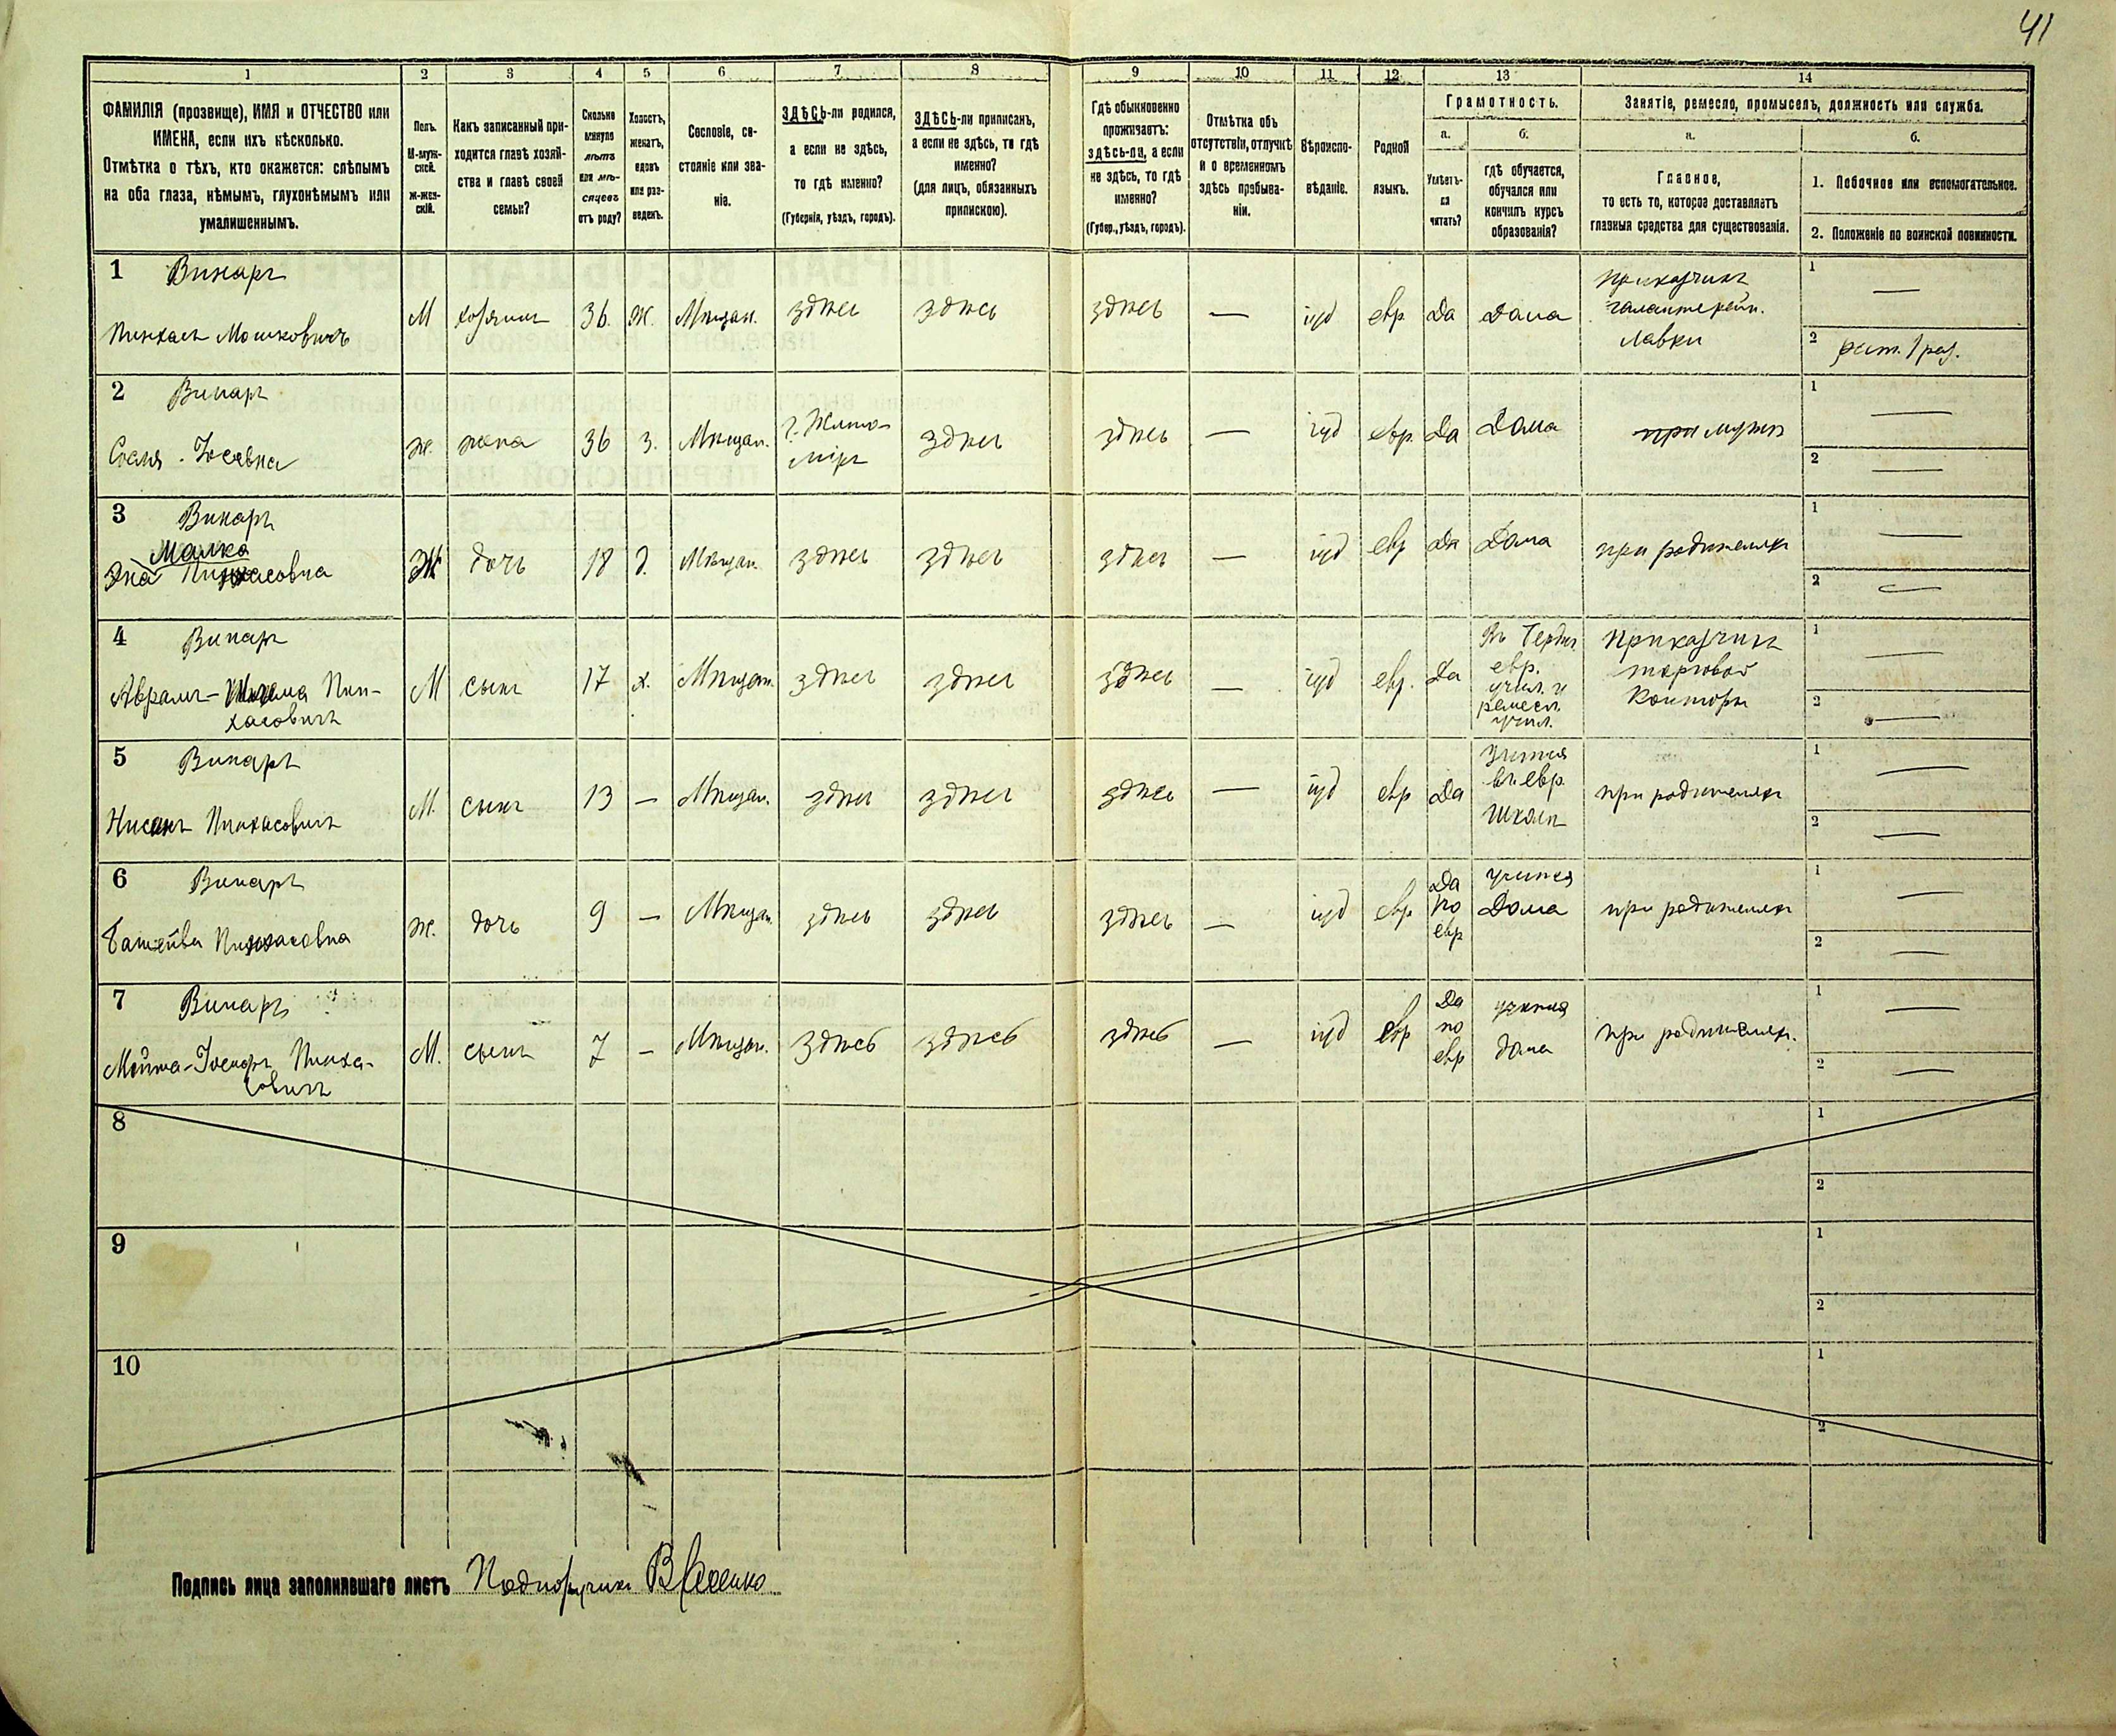 41
1 2 3 4 5 6 7 8 9 10 11 12 13 14
ФАМИЛІЯ (прозвище), ИМЯ и ОТЧЕСТВО или
ИМЕНА, если ихъ нѣсколько.
Отмѣтка о тѣхъ, кто окажется: слѣпымъ
на оба глаза, нѣмымъ, глухонѣмымъ или
умалишеннымъ.
Полъ.
М-муж-
ской.
Ж-жен-
скій.
Какъ записанный при-
ходится главѣ хозяй-
ства и главѣ своей
семьи?
Сколько
минуло
лѣтъ
или мѣ-
сяцевъ
отъ роду?
Холостъ,
женатъ,
вдовъ
или раз-
веденъ.
Сословіе, со-
стояніе или зва-
ніе.
ЗДѢСЬ-ли родился,
а если не здѣсь,
то гдѣ именно?
(Губернія, уѣздъ, городъ).
ЗДѢСЬ-ли приписанъ,
а если не здѣсь, то гдѣ
именно?
(для лицъ, обязанныхъ
припискою).
Гдѣ обыкновенно
проживаетъ:
здѣсь-ли, а если
не здѣсь, то гдѣ
именно?
(Губер., уѣздъ, городъ).
Отмѣтка объ
отсутствіи, отлучкѣ
и о временномъ
здѣсь пребыва-
ніи.
Вѣроиспо-
вѣданіе.
Родной
языкъ.
Грамотность.
а.
б.
Умѣетъ-
ли
читать?
гдѣ обучается,
обучался или
кончилъ курсъ
образованія?
Занятіе, ремесло, промыселъ, должность или служба.
а.
б.
Главное,
то есть то, которое доставляетъ
главныя средства для существованія.
1. Побочное или вспомогательное.
2. Положеніе по воинской повинности.
1 Винаръ
Пинхасъ Мошковичъ
М хозяинъ 36. Ж. Мѣщан. здѣсь здѣсь здѣсь — іуд евр Да Дома
Приказчикъ
галантерейн.
лавки
1 —
2 рат. 1 раз.
2 Винаръ
Іосевна
ж. жена 36 з. Мѣщан.
г. Жито-
міръ
здѣсь здѣсь — іуд евр. Да Дома при мужѣ
1 —
2 —
3 Винаръ
Малка
Эна Пинхасовна
Ж дочь 18 д. Мѣщан. здѣсь здѣсь здѣсь — іуд евр Да Дома при родителяхъ
1 —
2 —
4 Винаръ
Аврамъ- Пин-
хасовичъ
М сынъ 17 х. Мѣщан. здѣсь здѣсь здѣсь — іуд евр. Да
евр.
учил. и
ремесл.
учил.
Приказчикъ
торговой
Конторы
1 —
2 —
5 Винаръ
Нисонъ Пинхасовичъ
М. сынъ 13 — Мѣщан. здѣсь здѣсь здѣсь — іуд евр Да
Учится
въ евр.
Школѣ
при родителяхъ
1 —
2 —
6 Винаръ
Батшейва Пинхасовна
ж. дочь 9 — Мѣщан. здѣсь здѣсь здѣсь — іуд евр
Да
по
евр
учится
Дома
при родителяхъ
1 —
2 —
7 Винаръ
Пинха-
совичъ
М. сынъ 7 — Мѣщан. здѣсь здѣсь здѣсь — іуд евр
Да
по
евр
учится
дома
при родителяхъ.
1 —
2 —
8
1
2
9
1
2
10
1
2
Подпись лица заполнившаго листъ Подпоручикъ